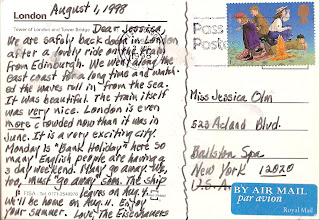 London
August 1, 1998
Tower of London and Tower Bridge
Dear Jessica,
We are safely back down in London
after a lovely ride on the train
from Edinburgh. We went along the
East coast for a long time and watch-
ed the waves roll in from the sea.
It was beautiful. The train itself
was very nice. London is even
more crowded now than it was in
June. It is a very exciting city.
Monday is "Bank Holiday" here so
many English people are having a
3 day weekend. Many go away. We,
too, must go away soon. The ship
leaves on Aug. 4.
We'll be home on Aug. 11. Enjoy
your summer. Love, The Eisenhauers
Pass
Poste
Miss Jessica Olm
523 Acland Blvd.
Ballston Spa
New York 12020
U.S.A.
BY AIR MAIL
par avion
Royal Mail